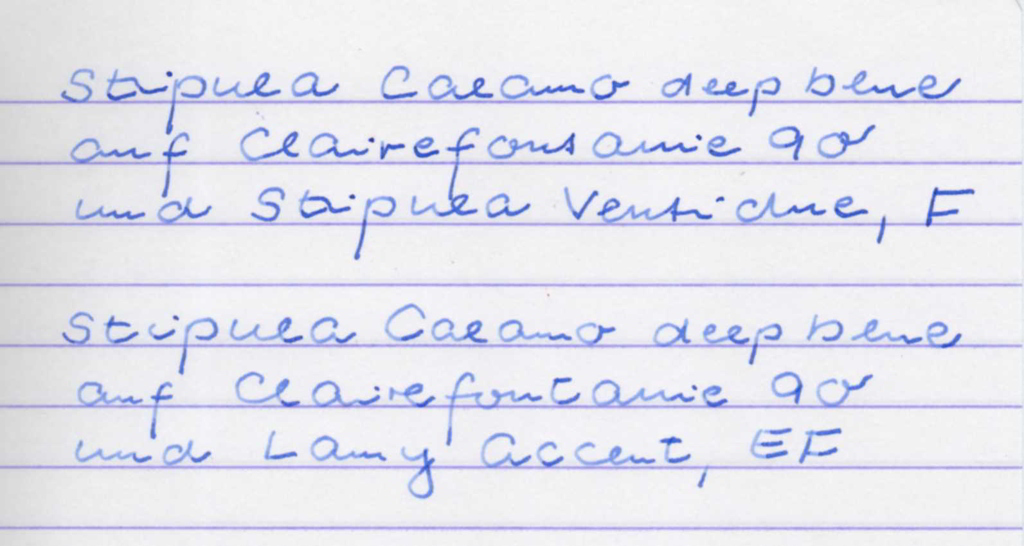 Stipula Calamo deep blue
auf Clairefontaine 90
und Stipula Ventidue, F
Stipula Calamo deep blue
auf Clairefontaine 90
und Lamy Accent, EF